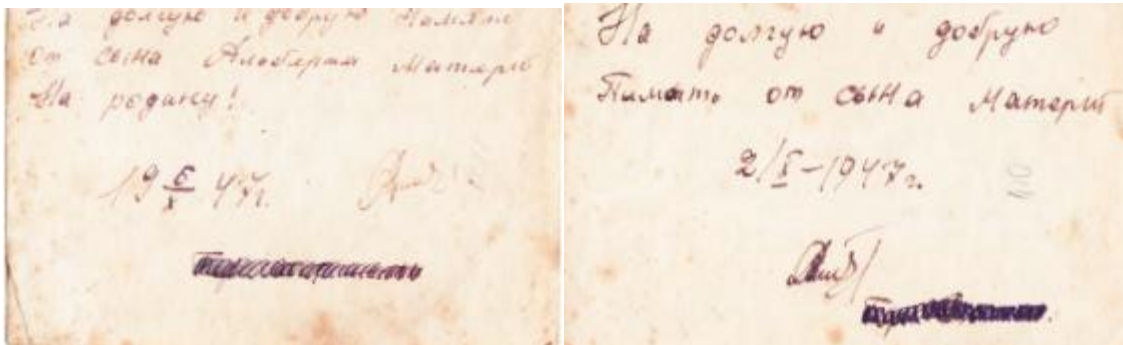 На долгую и добрую Память
от сына Альберта Матери
На родину!
19 6/X 47г.
На долгую и добрую
Память от сына Матери
2/X-1947г.